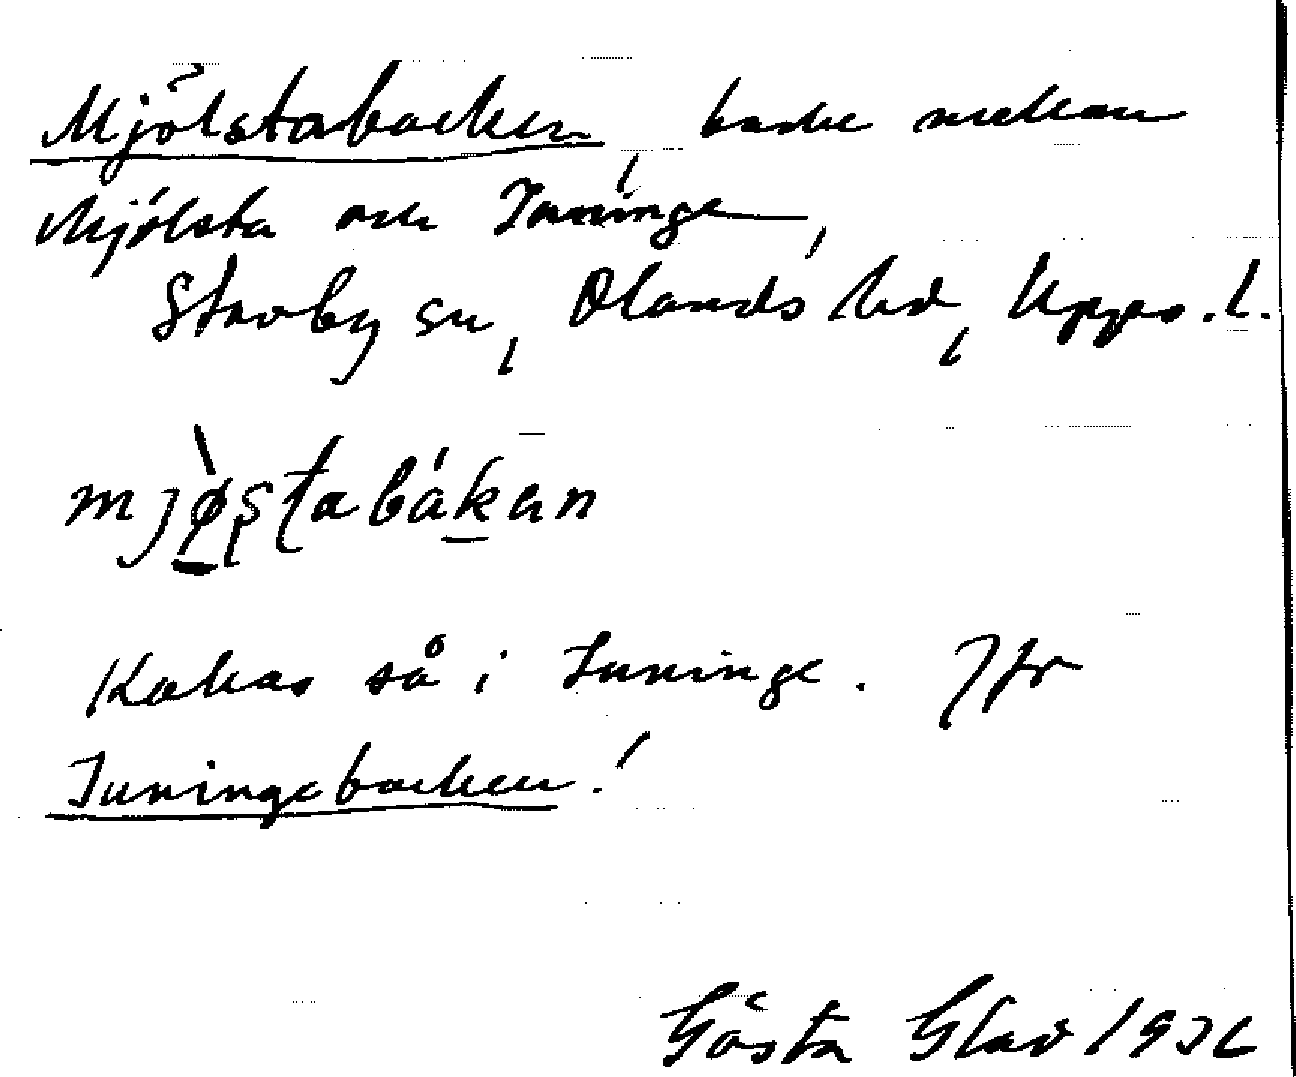 Mjölstabacken, backe mellan
Mjölsta och Tuninge,
Stavby sn, Olands hd, Upps. l.
mjø̀ṣṭabákan
Kallas så i Tuninge. Jfr
Tuningebacken!
Gösta Glad 1936